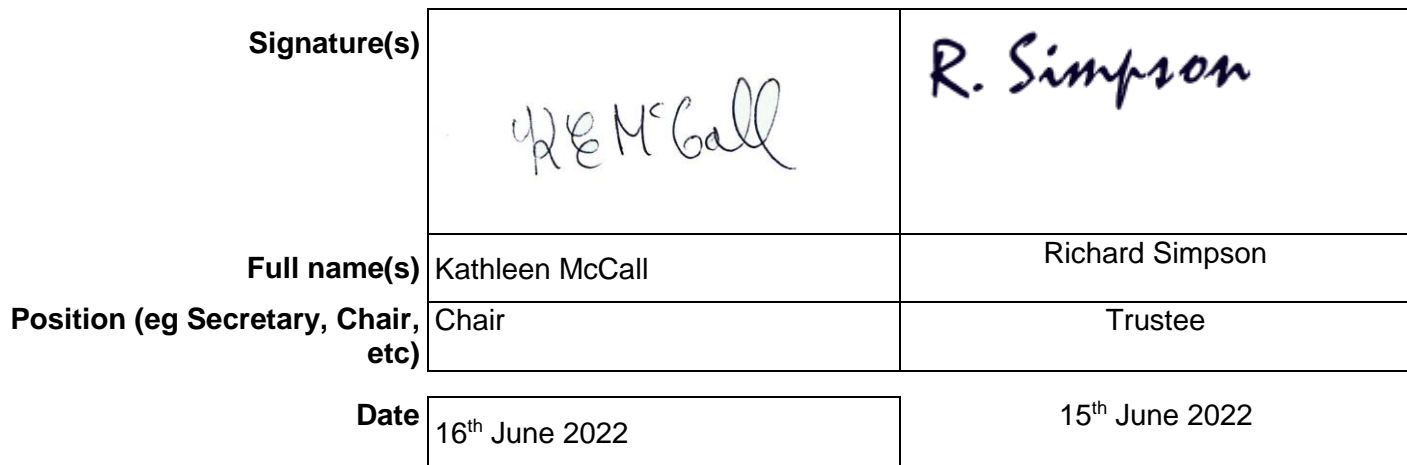 Signature(s)
KE McCall
R. Simpson
Full name(s) Kathleen McCall Richard Simpson
Position (eg Secretary, Chair, Chair Trustee
etc)
Date 16th June 2022 15th June 2022